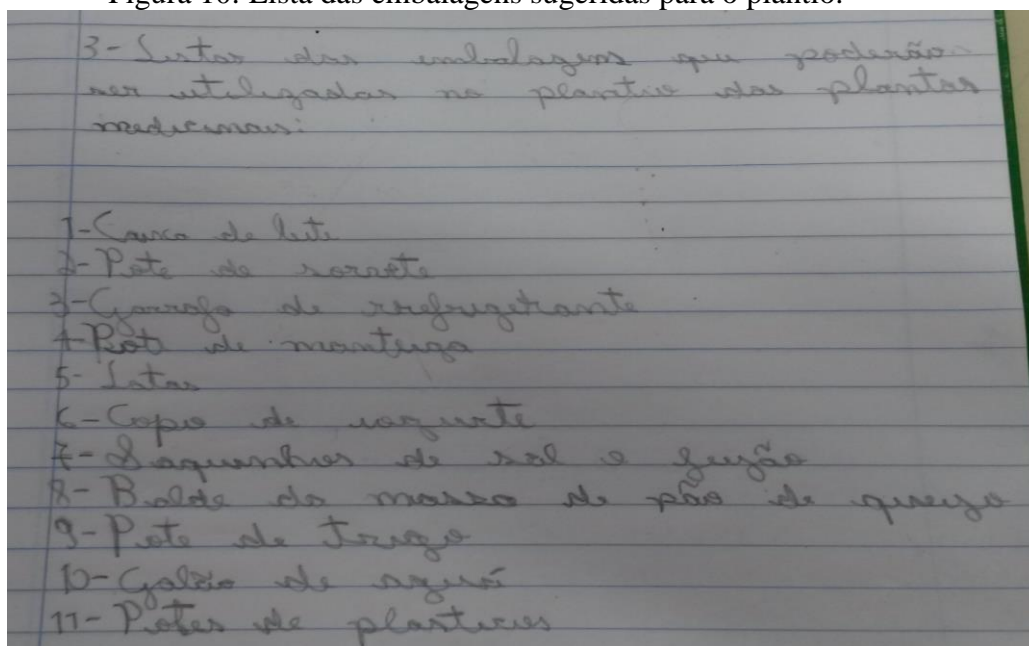 Figura 10: Lista das embalagens sugeridas para o plantio.
3- Listas das embalagens que poderão
ser utilizadas no plantio das plantas
medicinais:
1- Caixa de leite
2- Pote de sorvete
3- Garrafa de refrigerante
4- Pote de manteiga
5- Latas
6- Copo de iogurte
7- Saquinhos de sal e feijão
8- Balde da massa de pão de queijo
9- Pote de Trigo
10- Galão de agua
11- Potes de plasticos